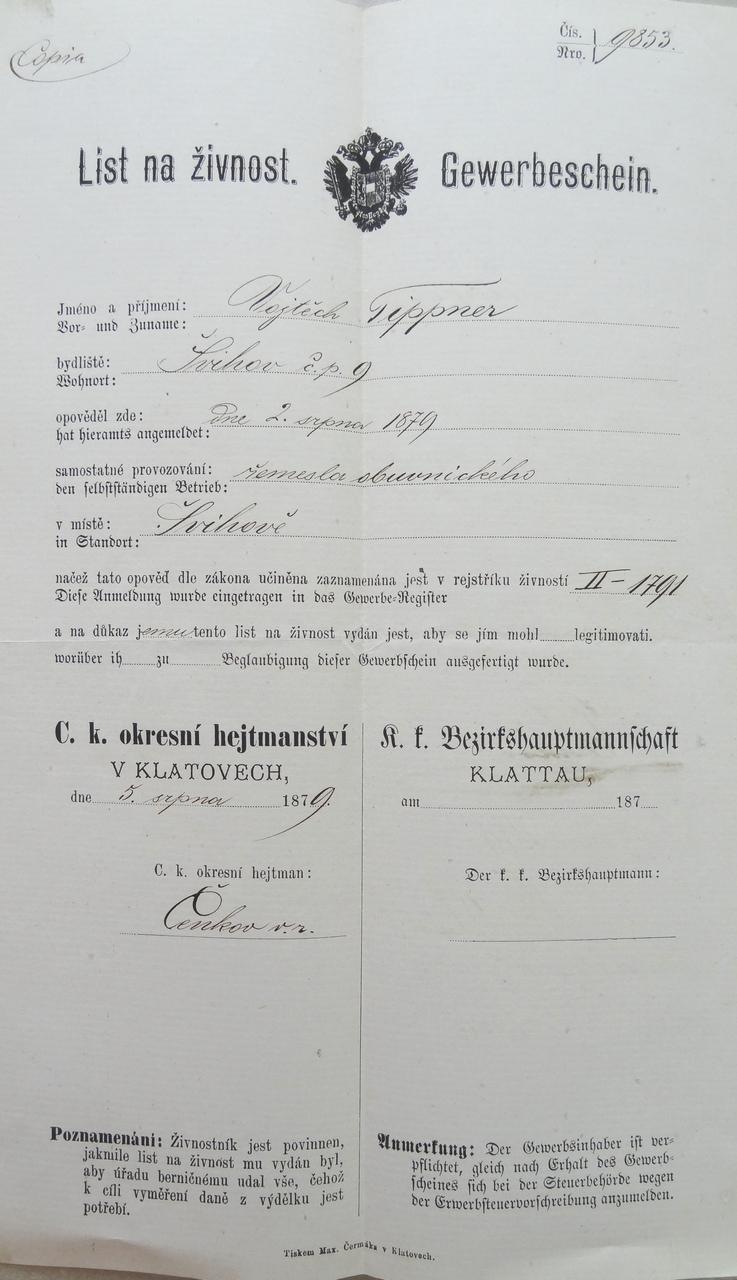 Copia
Čís.
Nro. 9853.
List na živnost. Gewerbeschein.
Jméno a příjmení: Vojtěch Tippner
Vor- und Zuname:
bydliště: Švihov č.p. 9
Wohnort:
opověděl zde: dne 2. srpna 1879
hat hieramts angemeldet:
samostatné provozování: řemesla obuvnického
den selbstständigen Betrieb:
v místě: Švihově
in Standort:
načež tato opověď dle zákona učiněna zaznamenána jest v rejstříku živností II – 1791
Diese Anmeldung wurde eingetragen in das Gewerbe-Register
a na důkaz jemu tento list na živnost vydán jest, aby se jím mohl legitimovati.
worüber ih zu Beglaubigung dieser Gewerbschein ausgefertigt wurde.
C. k. okresní hejtmanství
V KLATOVECH,
dne 5. srpna 1879.
C. k. okresní hejtman:
Čenkov v.r.
K. k. Bezirkshauptmannschaft
KLATTAU,
am 187
Der k. k. Bezirkshauptmann:
Poznamenání: Živnostník jest povinnen,
jakmile list na živnost mu vydán byl,
aby úřadu berničnému udal vše, čehož
k cíli vyměření daně z výdělku jest
potřebí.
Anmerkung: Der Gewerbsinhaber ist ver-
pflichtet, gleich nach Erhalt des Gewerb-
scheines sich bei der Steuerbehörde wegen
der Erwerbsteuervorschreibung anzumelden.
Tiskem Max. Čermáka v Klatovech.